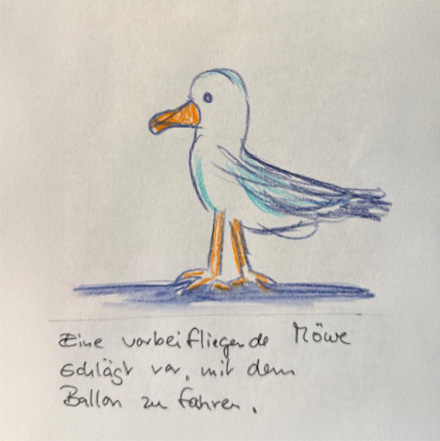 Eine vorbeifliegende Möwe
schlägt vor, mit dem
Ballon zu fahren.